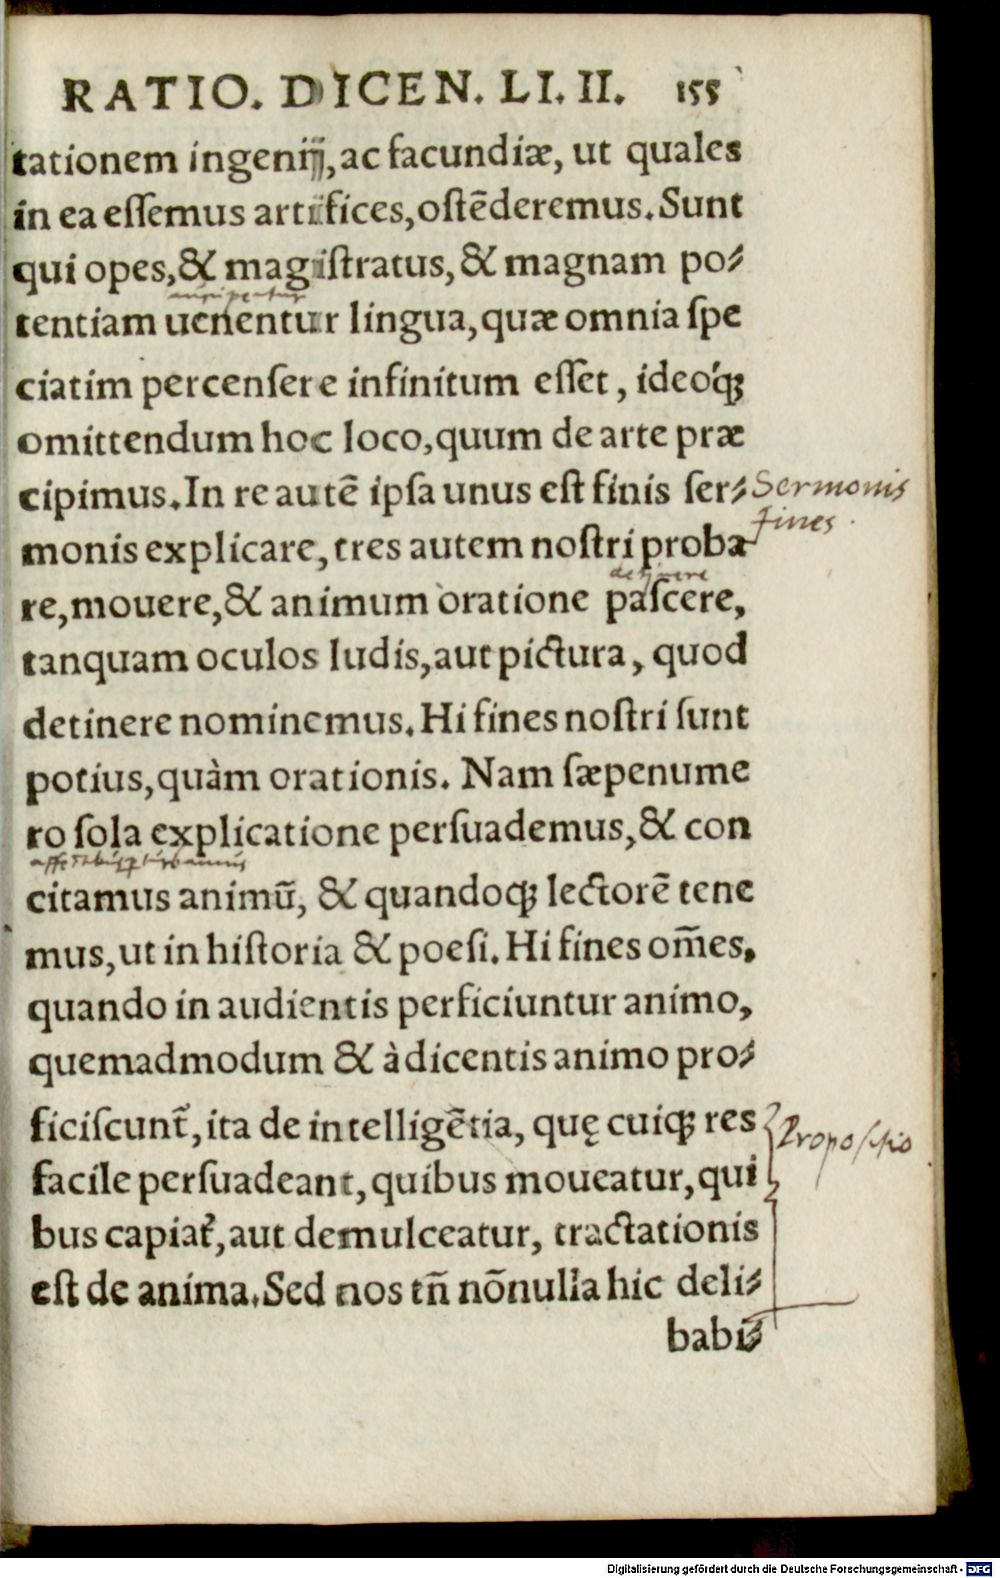 RATIO. DICEN. LI. II. 155
tationem ingenij, ac facundiæ, ut quales
in ea essemus artifices, ostēderemus. Sunt
qui opes, & magistratus, & magnam po-
tentiam uenentur lingua, quæ omnia spe
ciatim percensere infinitum esset, ideoq́ꝫ
omittendum hoc loco, quum de arte præ
cipimus. In re autē ipsa unus est finis ser- Sermonis
fines.
monis explicare, tres autem nostri proba
detinere
re, mouere, & animum oratione pascere,
tanquam oculos ludis, aut pictura, quod
detinere nominemus. Hi fines nostri sunt
potius, quàm orationis. Nam sæpenume
ro sola explicatione persuademus, & con
citamus animū, & quandoqꝫ lectorē tene
mus, ut in historia & poesi. Hi fines om̄es,
quando in audientis perficiuntur animo,
quemadmodum & à dicentis animo pro-
ficiscunt̃, ita de intelligētia, quę cuiqꝫ res
Propositio
facile persuadeant, quibus moueatur, qui
bus capiat̃, aut demulceatur, tractationis
est de anima. Sed nos tñ nōnulla hic deli-
babi-
Digitalisierung gefördert durch die Deutsche Forschungsgemeinschaft - DFG